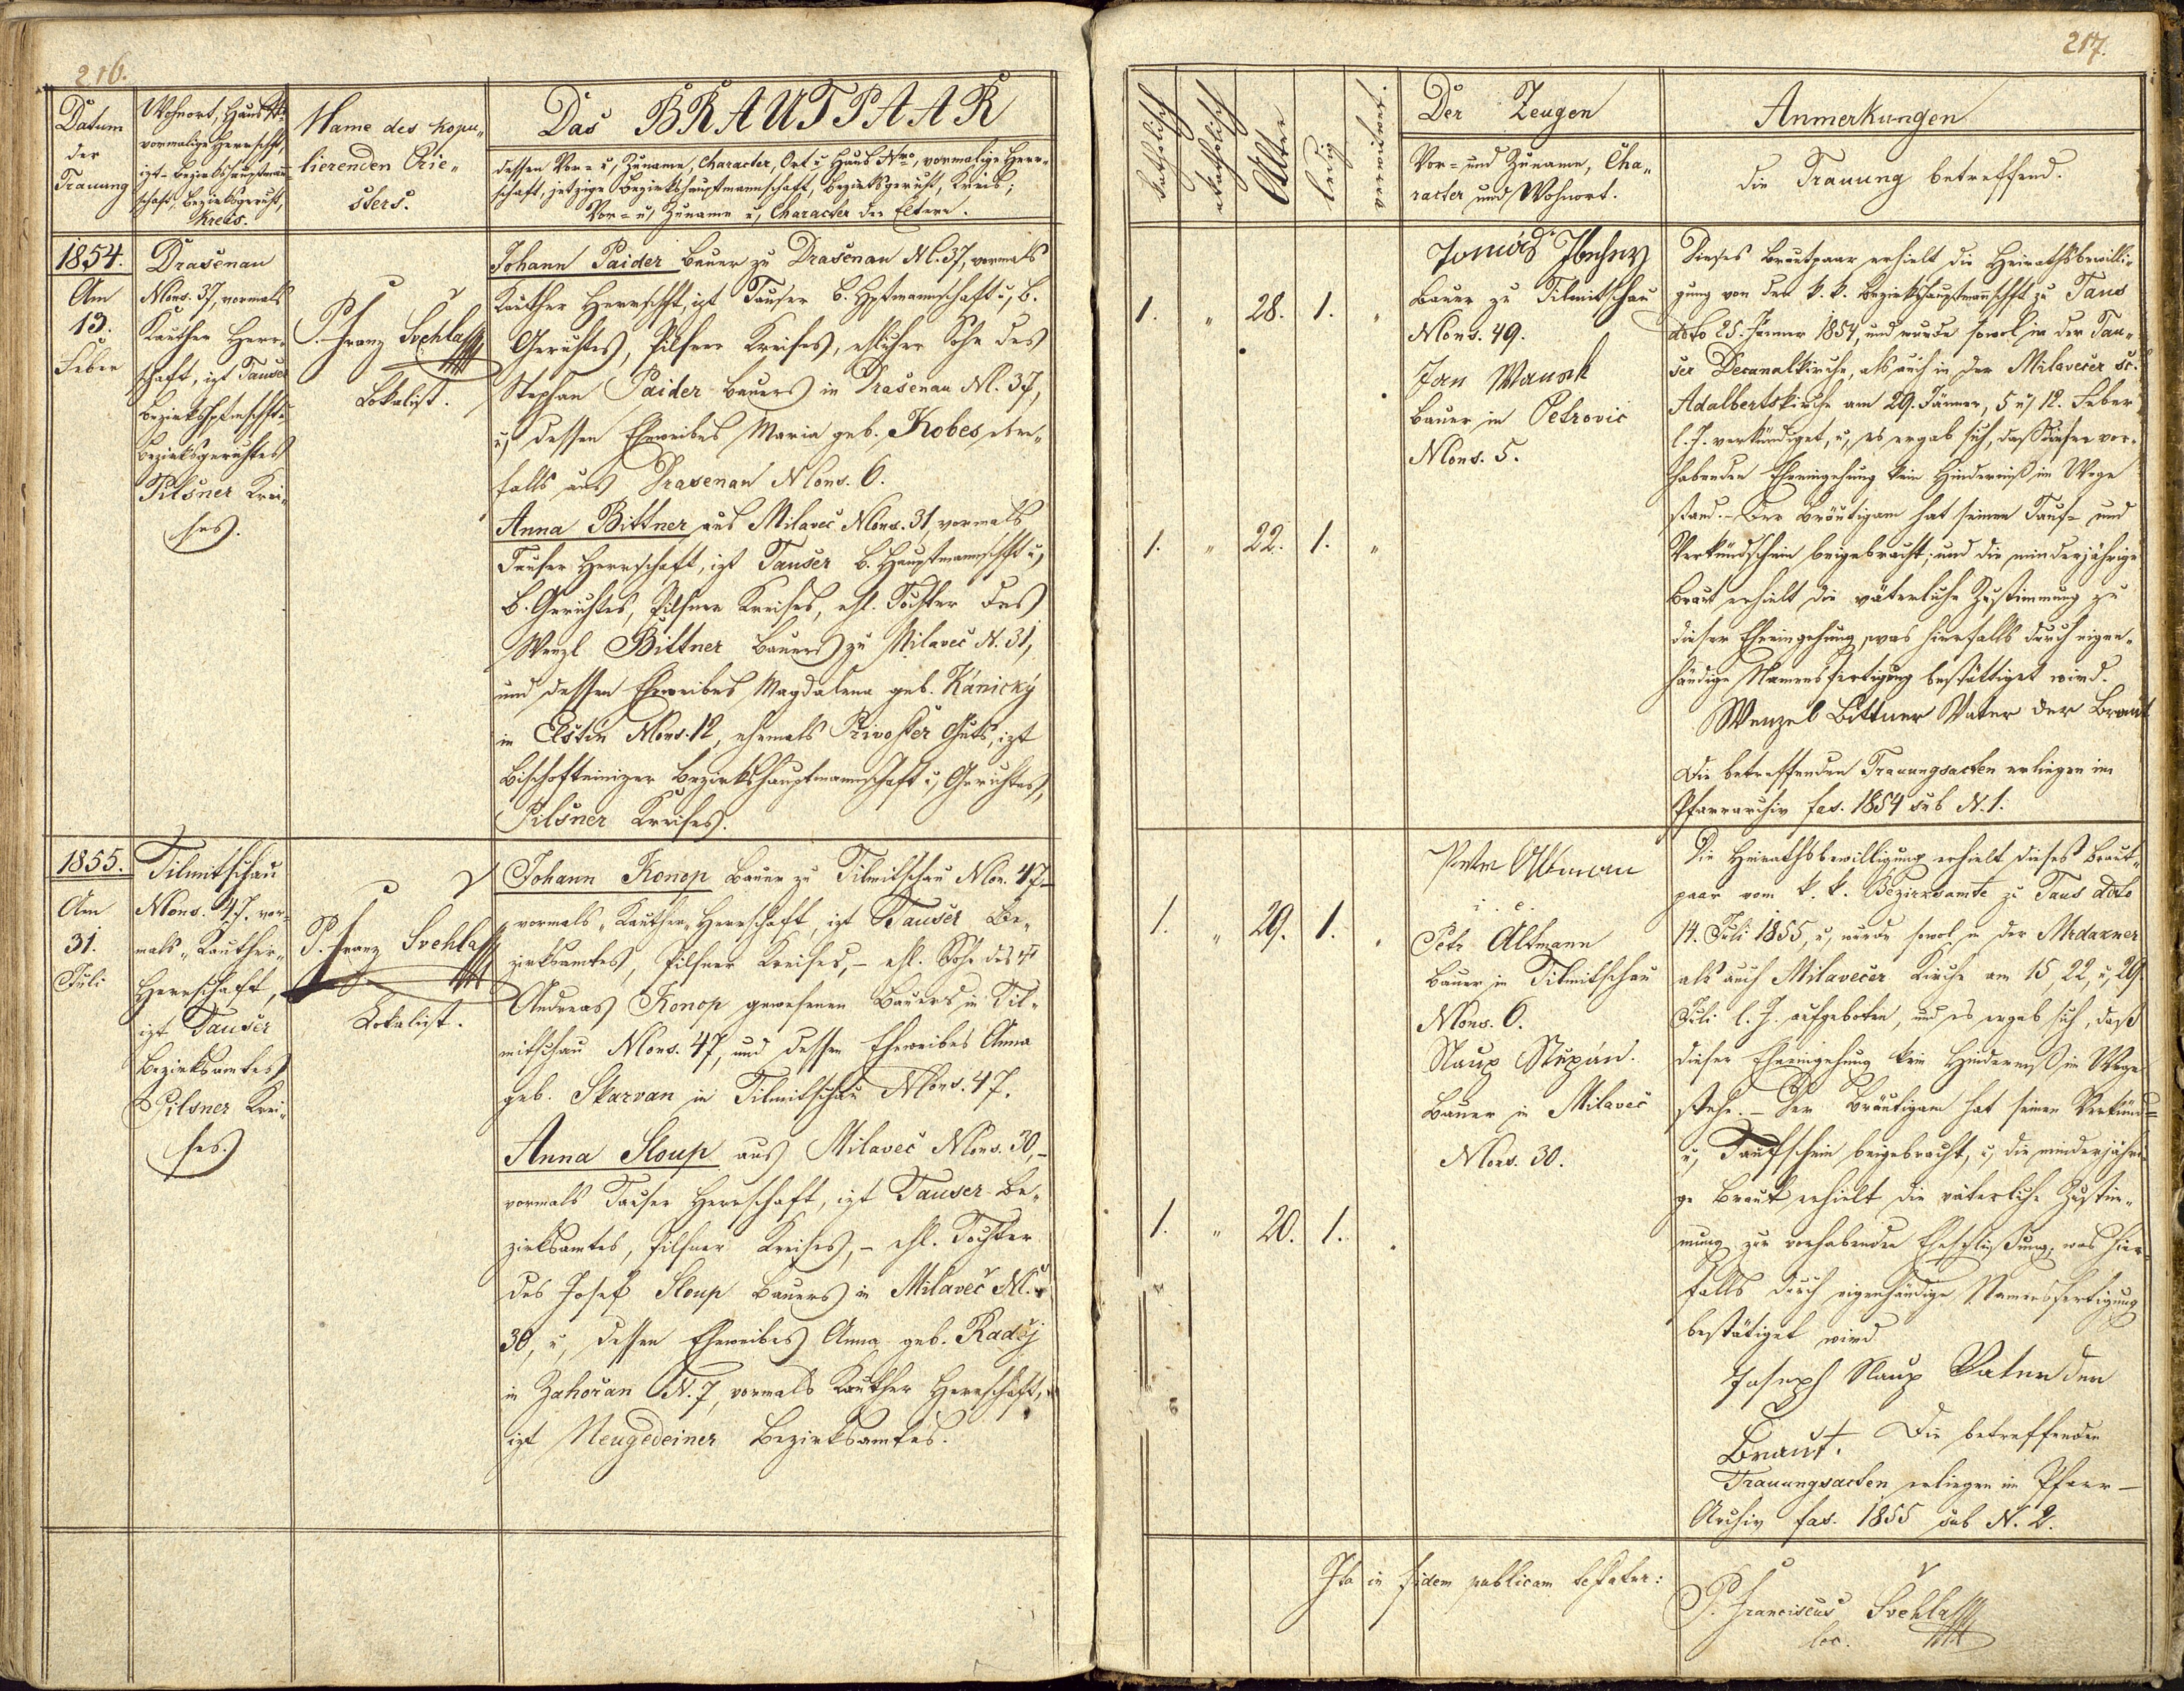 216.
Datum
der
Trauung
Wohnort, Haus N°
vormalige Herrschft,
izt Bezirkshauptmann=
schaft, Bezirksgericht,
Kreis.
Name des kopu„
lierenden Prie„
sters.
Das BRAUTPAAR
dessen Vor= u, Zuname, Character, Ort u, Haus Nro, vormalige Herr=
schaft, jetzige Bezirkshauptmannschaft, Bezirksgericht, Kreis;
Vor= u, Zuname u, Character der Eltern.
1854.
Am
13.
Feber
Drasenau
Nons. 37, vormals
Kauther Herr=
schaft, izt Tauser
Bezirkshptmschft u,
Bezirksgerichtes
Pilsner Krei„
ses.
P. Franz Švehla
Lokalist.
Johann Paider Bauer zu Drasenau N. 37, vormals
Kauther Herrschft, izt Tauser B. Hptmannschaft u, B.
Gerichtes, Pilsner Kreises, ehlicher Sohn des
Stephan Paider Bauers in Drasenau N. 37,
u, dessen Eheweibes Maria geb. Kobes eben„
falls aus Drasenau Nons. 6.
Anna Bittner aus Milaveč Nons. 31, vormals
Tauser Herrschaft, izt Tauser B. Hauptmannschft u,
B. Gerichtes, Pilsner Kreises, ehl. Tochter des
Wenzl Bittner Bauers zu Milaveč N. 31,
und dessen Eheweibes Magdalena geb. Kánický
in Nons. 12, ehemals Guts, izt
Bischofteinizer Bezirkshauptmannschaft u, Gerichtes,
Pilsner Kreises.
1855.
Am
31.
Juli
Tilmitschau
Nons. 47. vor=
mals „Kauther„
Herrschaft,
izt Tauser
Bezirksamtes
Pilsner Krei„
ses.
P. Franz Švehla
Lokalist.
Johann Konop Bauer zu Tilmitschau Non. 47
vormals „Kauther„ Herrschaft, izt Tauser Be„
zirksamtes, Pilsner Kreises, – ehl. Sohn des †
Andreas Konop gewesenen Bauers in Til„
mitschau Nons. 47, und dessen Eheweibes Anna
geb. Skarvan in Tilmitschau Nons. 47.
Anna Sloup aus Milaveč Nons. 30,–
vormals Tauser Herrschaft, izt Tauser Be„
zirksamtes, Pilsner Kreises, – ehl. Tochter
des Josef Sloup Bauers in Milaveč N.
30, u, dessen Eheweibes Anna geb.
in Zahořan N. 7, vormals Kauther Herrschaft,
izt Neugedeiner Bezirksamtes.
217.
katholisch
akatholisch
Alter
ledig
verwitwet.
Der Zeugen
Vor= und Zuname, Cha„
racter und Wohnort.
Anmerkungen
die Trauung betreffend.
1. „ 28. 1. „
1. „ 22. 1. „
Tomáš
Bauer zu Tilmitschau
Nons. 49.
Jan Wanek
Bauer in Petrovic
Nons. 5.
Dieses Brautpaar erhielt die Heirathsbewilli„
gung von der k. k. Bezirkshauptmannschft zu Taus
ddto 25. Jänner 1854, und wurde sowol in der Tau„
ser Decanalkirche, als auch in der Milavečer St.
Adalbertskirche am 29. Jänner, 5 u, 12. Feber
l. J. verkündiget, u, es ergab sich, daß dieser vor„
habenden Eheeingehung kein Hinderniß im Wege
stand. – Der Bräutigam hat seinen Tauf= und
Verkündschein beigebracht, und die minderjährige
Braut erhielt die väterliche Zustimmung zu
dieser Eheeingehung, was hierfalls durch eigen„
händige Namensfertigung bestättiget wird.
Wenzel Bittner Vater der Braut
Die betreffenden Trauungsacten erliegen im
Pfarrarchiv fas. 1854 sub N. 1.
1. „ 29. 1. „
1. „ 20. 1. „
Peter Altman
i. e.
Petr Altmann
Bauer in Tilmitschau
Nons. 6.
Slaup Stepán.
Bauer in Milaveč
Nons. 30.
Die Heirathsbewilligung erhielt dieses Braut„
paar vom k. k. Bezirksamte zu Taus ddto
14. Juli 1855, u, wurde sowol in der Mrdakner
als auch Milavečer Kirche am 15, 22, u, 29.
Juli l. J. aufgeboten, und es ergab sich, daß
dieser Eheeingehung kein Hinderniß im Wege
stehe. – Der Bräutigam hat seinen Verkünd=
u, Taufschein beigebracht, u, die minderjähri„
ge Braut erhielt die väterliche Zustim„
mung zur vorhabenden Eheschlüßung, was hier„
falls durch eigenhändige Namensfertigung
bestätiget wird
Joseph Slaup Vater der
Braut. Die betreffenden
Trauungsacten erliegen im Pfarr–
Archiv fas. 1855 sub N. 2.
Ita in fidem publicam testatur:
P. Franciscus Švehla
loc.